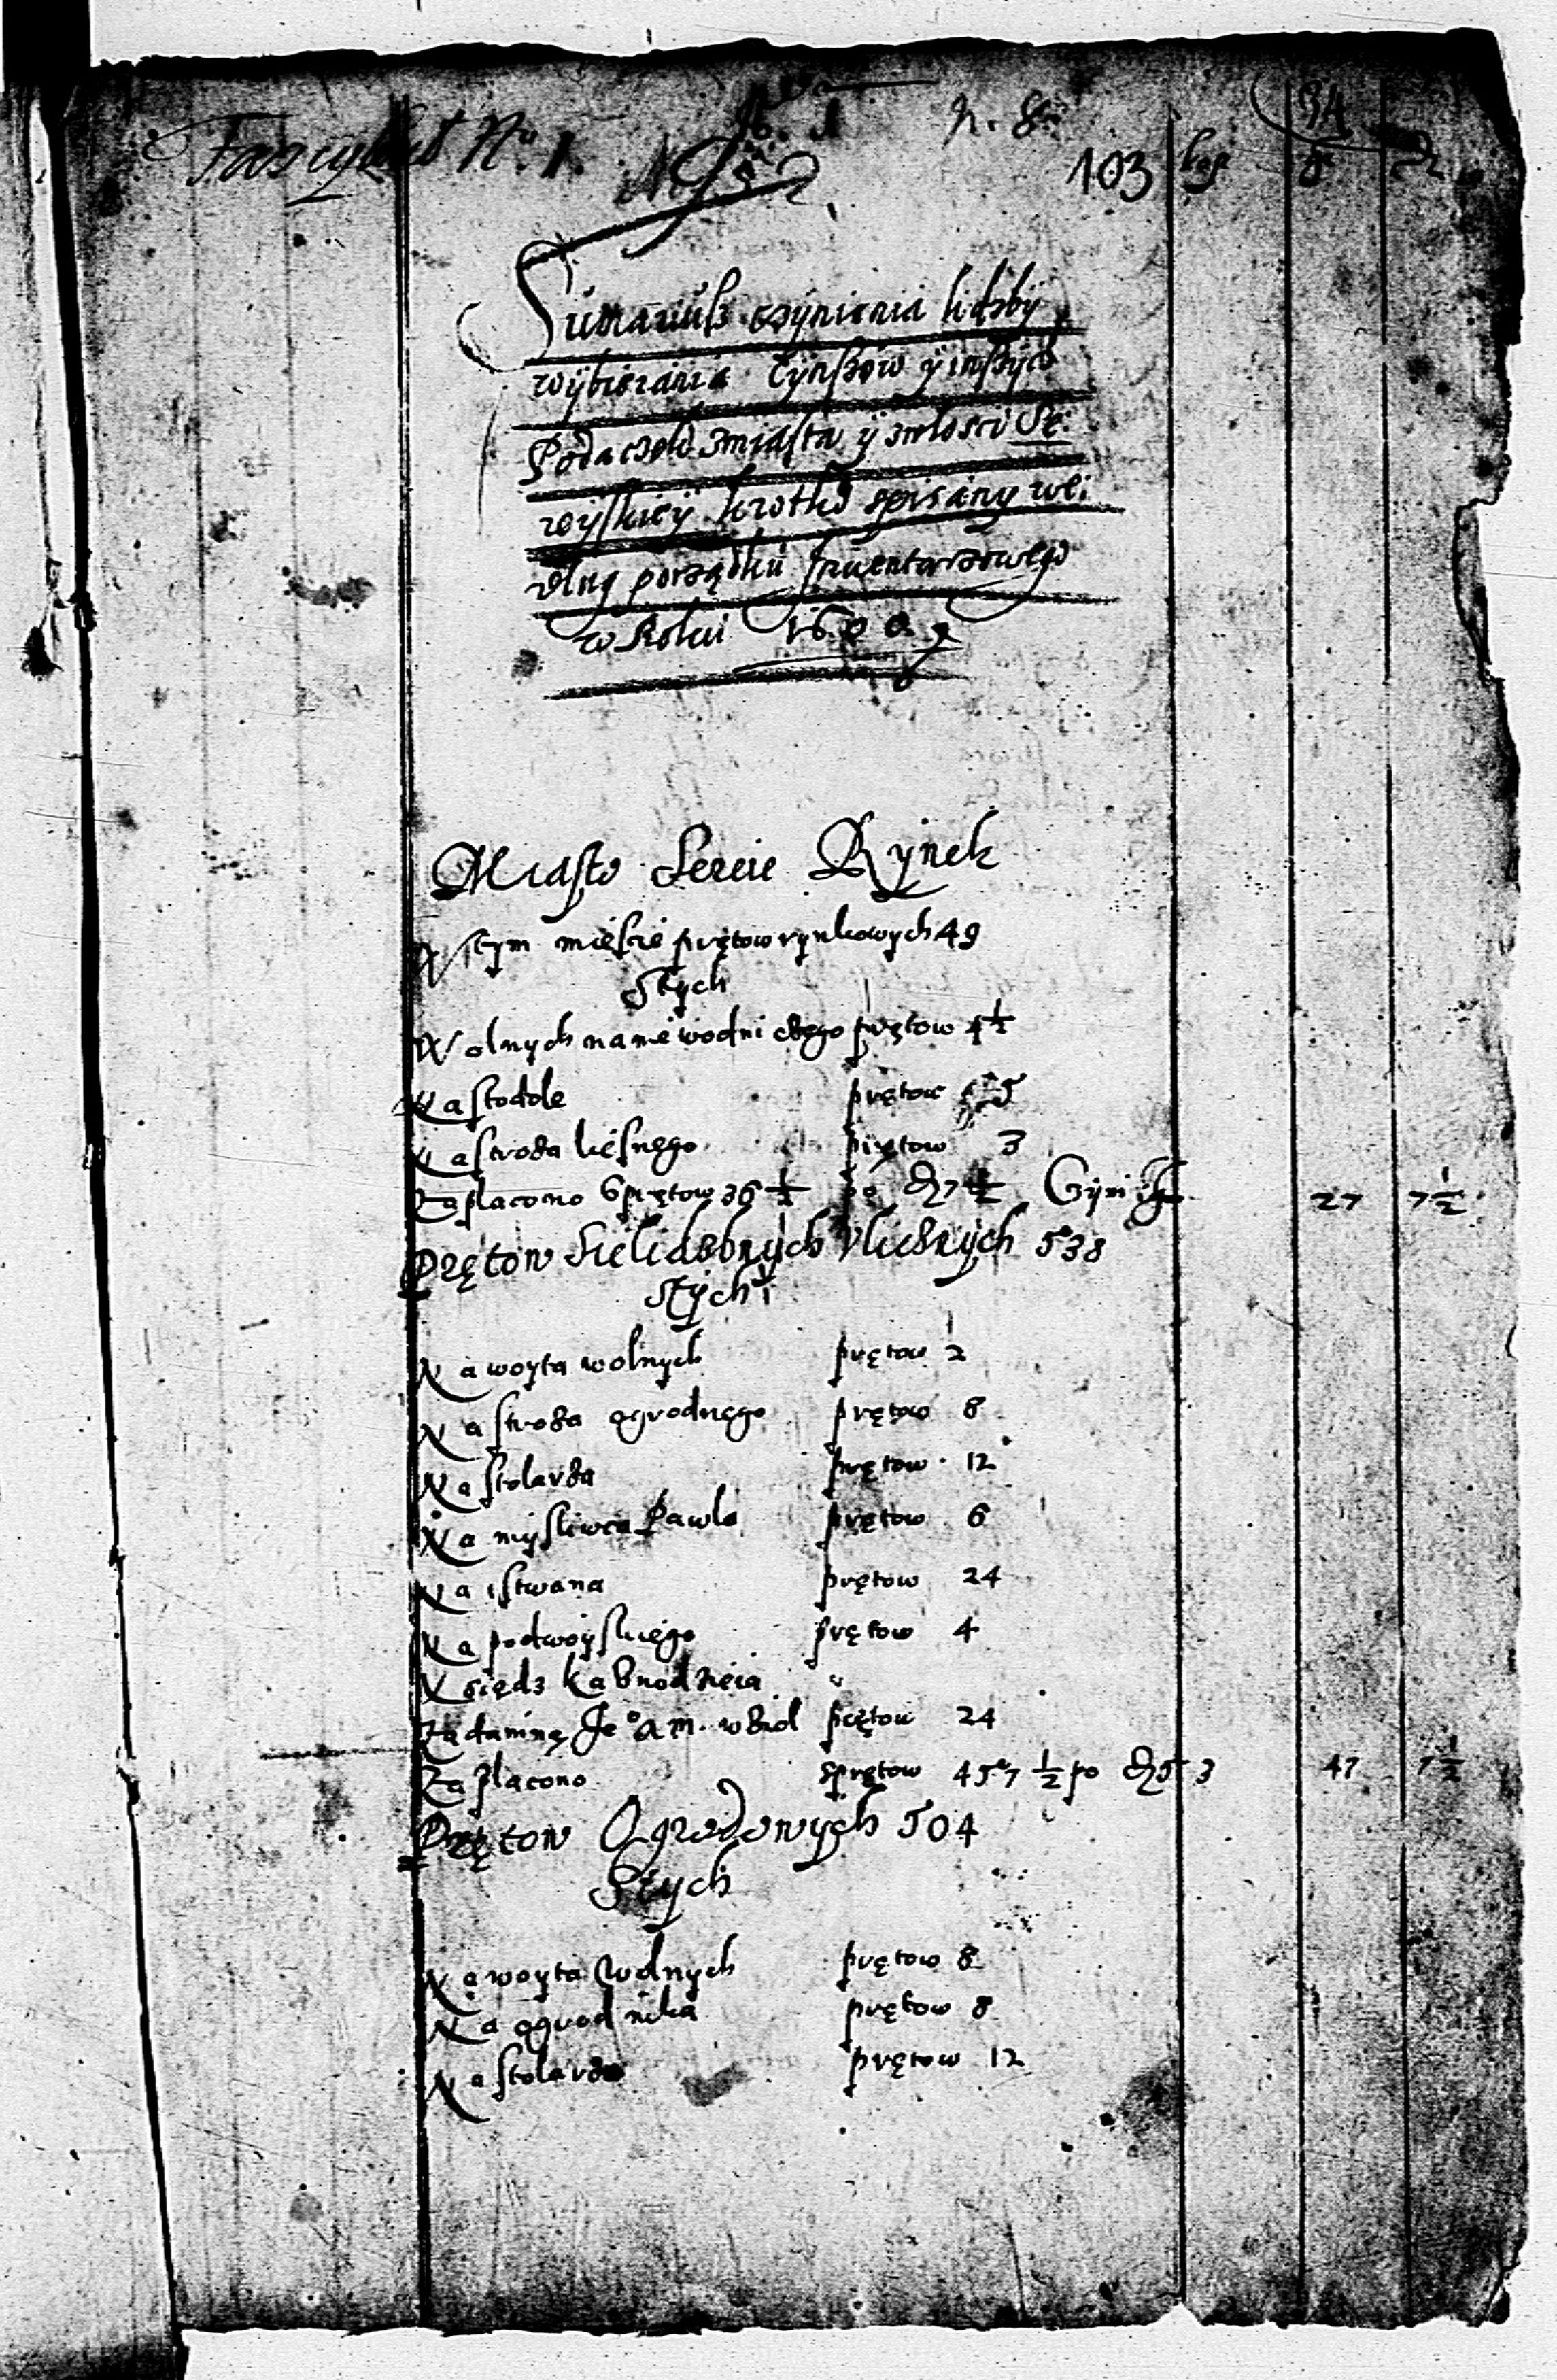 Fascykuł No. 1. n. 8
103 kop gr
Sumariusz czynienia lidzby
wybierania Czynszow y inszych
Podaczek z miasta y włosci Se:
reyskiey krotko spisany we:
dlug porządku Inuentarzowego
w Roku
Miasto Sereie Rynek
W tym mieście prętow rynkowych 49
Stych
Wolnych na niewodniczego prętow 4½
Na stodole prętow 5
Na stroża lieśnego prętow 3
Zapłacono s prętow 36½ po d 7½ Czyni 27 7½
Prętow Sielidzbnych Vlicznych 538
Stych
Na woyta wolnych prętow 2
Na stroża ogrodnego prętow 8
Na stolarza prętow 12
Na mysliwca Pawla prętow 6
Na istwana prętow 24
Na podwoyskiego prętow 4
Xsiędz Kaznodzieia "
Za daniną Je° a m. prętow 24
Zapłacono s prętow 457½ po d 5 3 47 7½
Prętow Ogrodowych 504
Stych
Na woyta wolnych prętow 8
Na ogrodnika prętow 8
Na stolarza prętow 12